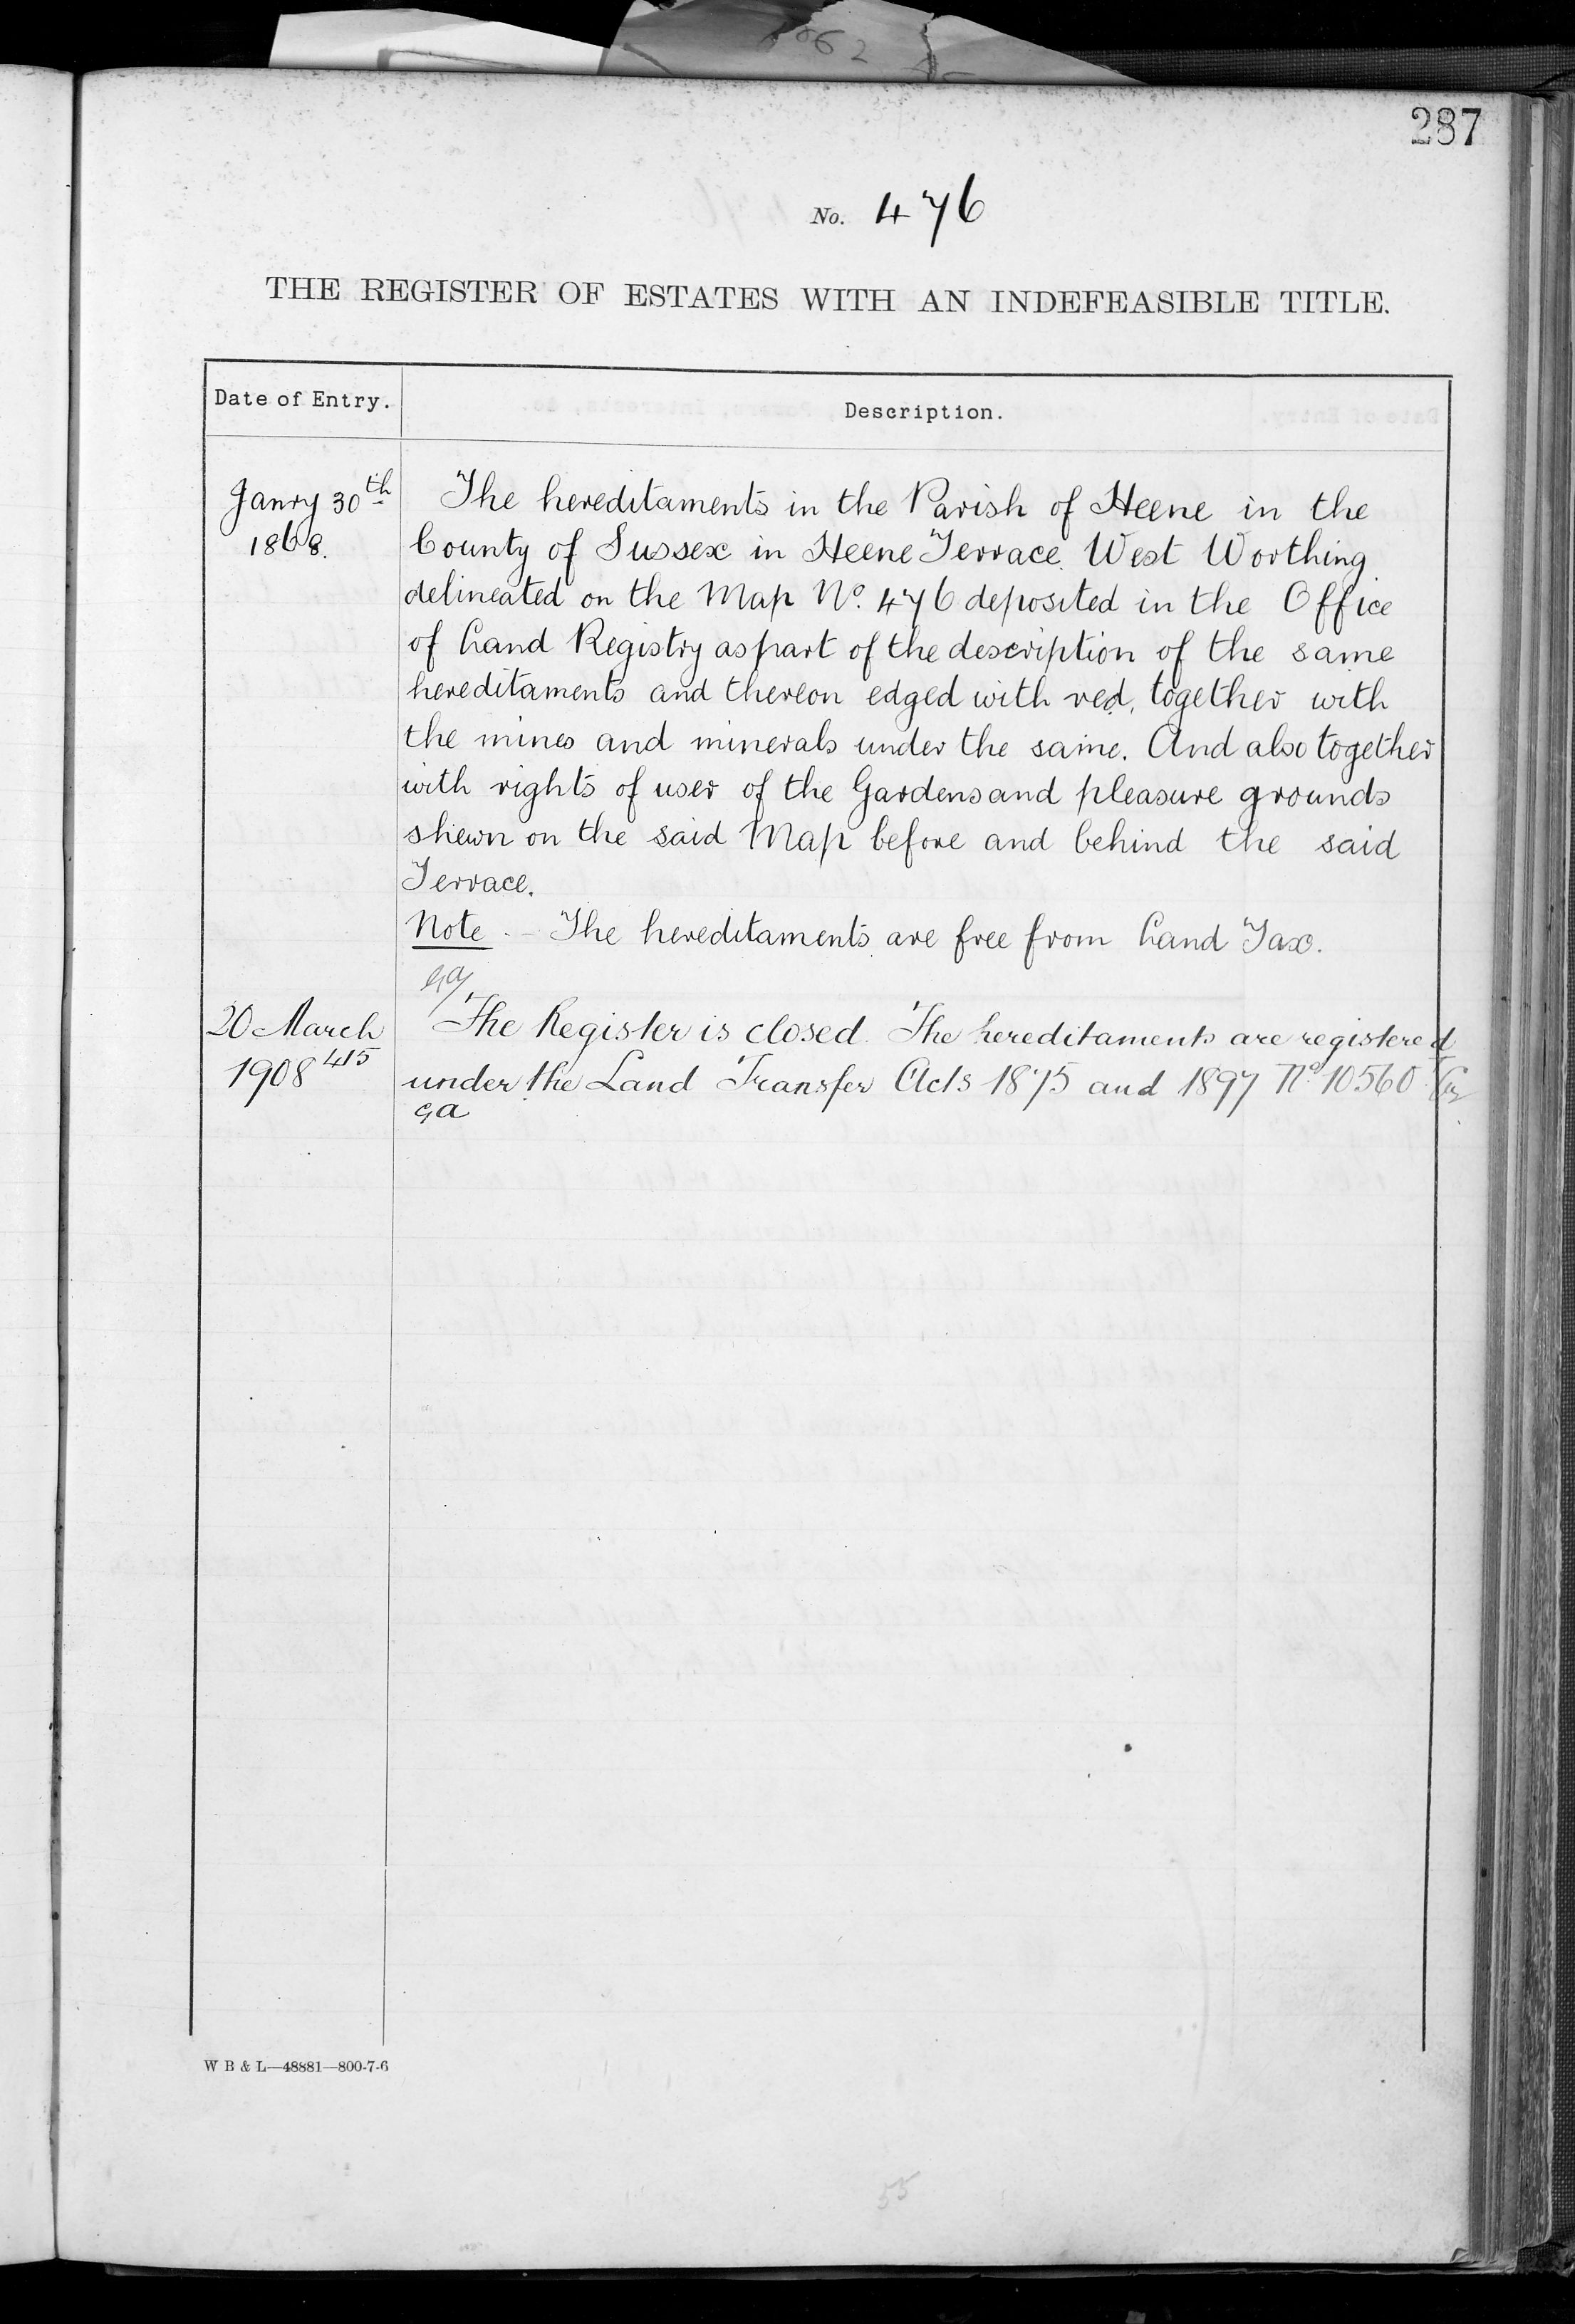 287
No. 476
THE REGISTER OF ESTATES WITH AN INDEFEASIBLE TITLE.
Date of Entry.
Description.
Janry 30th
1868.
The hereditaments in the Parish of Heene in the
County of Sussex in Heene Terrace. West Worthing
delineated on the Map No. 476 deposited in the Office
of Land Registry as part of the description of the same
hereditaments and thereon edged with red, together with
the mines and minerals under the same. And also together
with rights of user of the Gardens and pleasure grounds
shewn on the said Map before and behind the said
Terrace.
Note. - The hereditaments are free from Land Tax.
GA
20 March
1908 415
The Register is closed. The hereditaments are registered
under the Land Transfer Acts 1875 and 1897 No 10560
GA
W B & L—48881—800-7-6
55